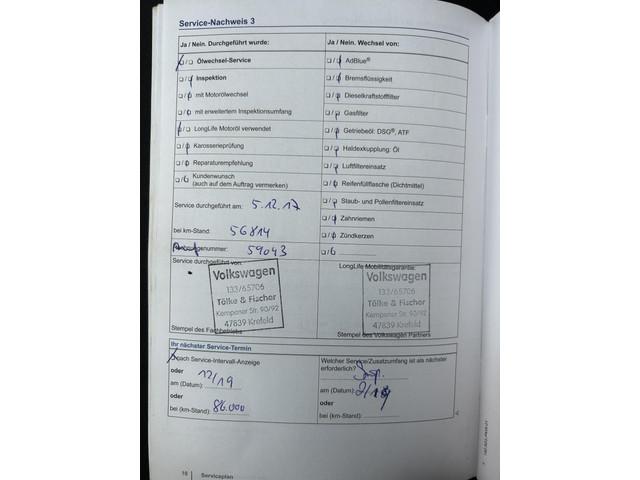 Service-Nachweis 3
Ja / Nein. Durchgeführt wurde:
Ölwechsel-Service
Inspektion
mit Motorölwechsel
mit erweitertem Inspektionsumfang
LongLife Motoröl verwendet
Karosserieprüfung
Reparaturempfehlung
Kundenwunsch
(auch auf dem Auftrag vermerken)
Service durchgeführt am: 5.12.17
bei km-Stand: 56814
nummer: 59043
Service durchgeführt von:
Volkswagen
133/65706
Tölke & Fischer
Kempener Str. 90/92
47839 Krefeld
Stempel des Fachbetriebs
Ja / Nein. Wechsel von:
AdBlue®
Bremsflüssigkeit
Dieselkraftstofffilter
Gasfilter
Getriebeöl: DSG®, ATF
Haldexkupplung: Öl
Luftfiltereinsatz
Reifenfüllflasche (Dichtmittel)
Staub- und Pollenfiltereinsatz
Zahnriemen
Zündkerzen
LongLife Mobilitätsgarantie:
Volkswagen
133/65706
Tölke & Fischer
Kempener Str. 90/92
47839 Krefeld
Stempel des Volkswagen Partners
Ihr nächster Service-Termin
nach Service-Intervall-Anzeige
oder
am (Datum): 12/19
oder
bei (km-Stand): 86.000
Welcher Service/Zusatzumfang ist als nächster
erforderlich? Insp.
am (Datum):
oder
bei (km-Stand):
16 Serviceplan